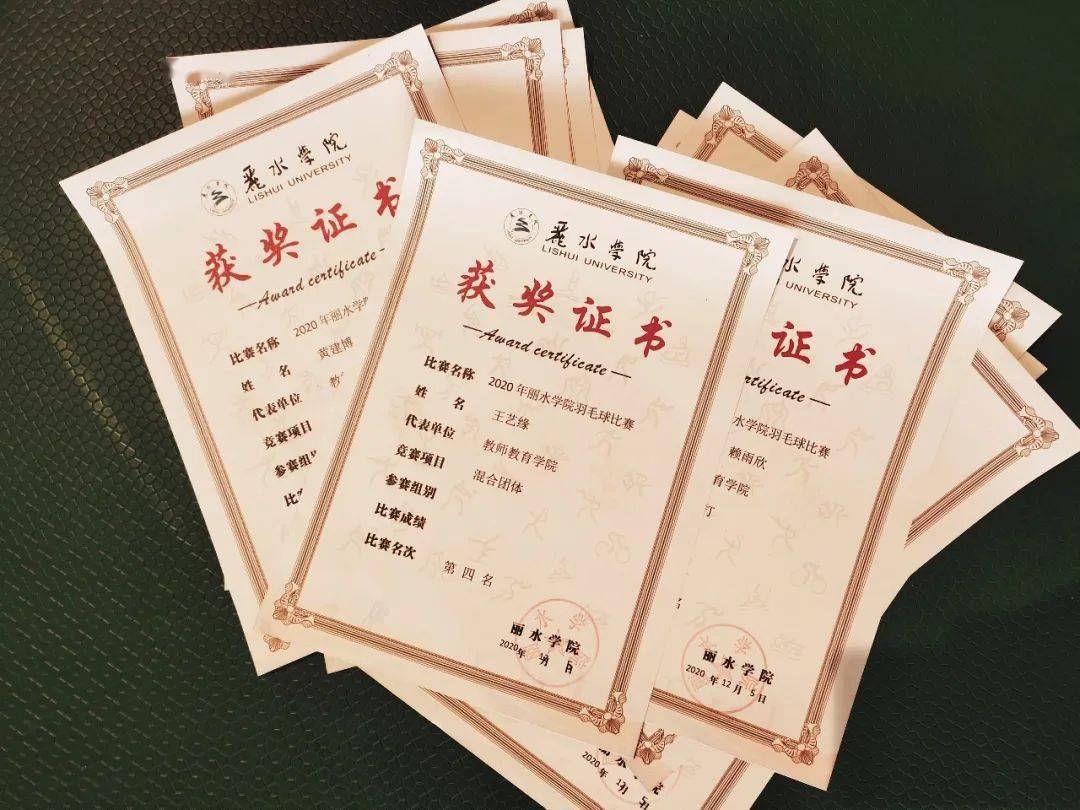 丽水学院
LISHUI UNIVERSITY
获奖证书
Award certificate
比赛名称 2020年丽水学
姓名 黄建博
代表单位 教
竞赛项目
参赛组
比
丽水学院
LISHUI UNIVERSITY
获奖证书
Award certificate
比赛名称 2020年丽水学院羽毛球比赛
姓名 王艺缘
代表单位 教师教育学院
竞赛项目 混合团体
参赛组别
比赛成绩
比赛名次 第四名
丽水学院
2020年 月 日
水学院
UNIVERSITY
证书
rtificate
水学院羽毛球比赛
赖雨欣
育学院
丁
名
丽水学院
2020年12月5日
水学院
2020年 月5